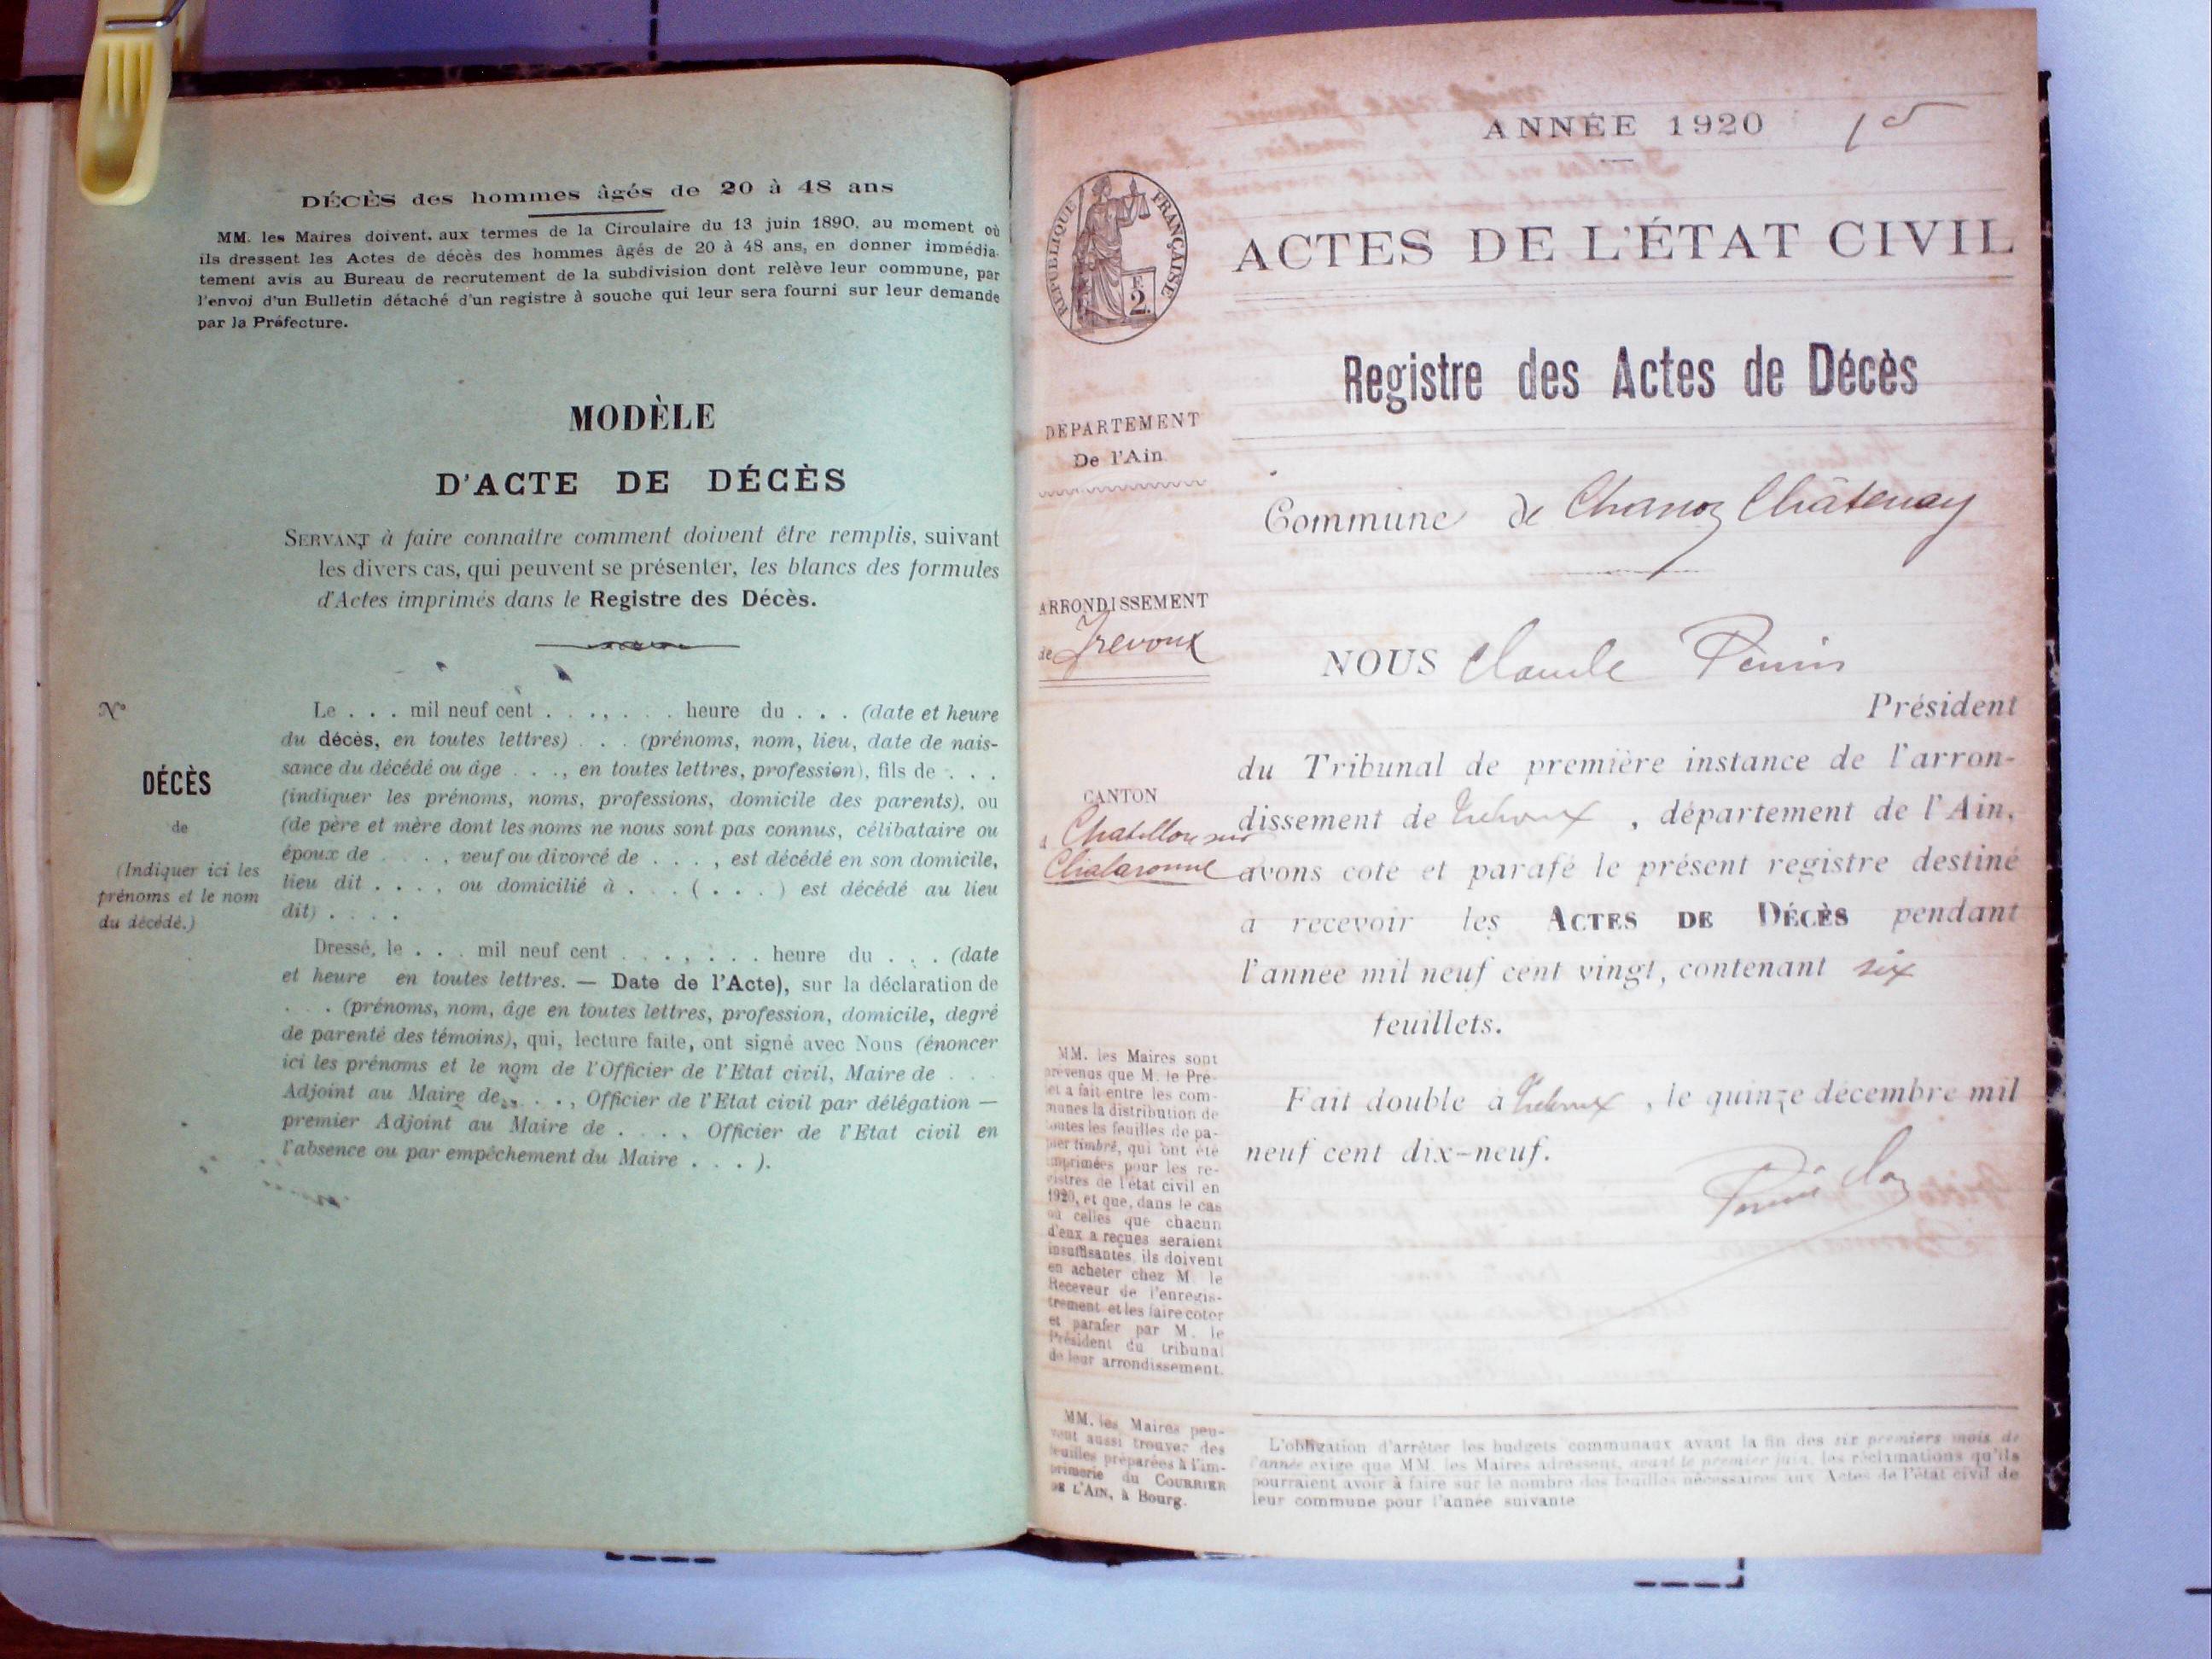 DÉCÈS des hommes âgés de 20 à 48 ans
MM. les Maires doivent, aux termes de la Circulaire du 13 juin 1890, au moment où
ils dressent les Actes de décès des hommes âgés de 20 à 48 ans, en donner immédia-
tement avis au Bureau de recrutement de la subdivision dont relève leur commune, par
l'envoi d'un Bulletin détaché d'un registre à souche qui leur sera fourni sur leur demande
par la Préfecture.
MODÈLE
D'ACTE DE DÉCÈS
SERVANT à faire connaître comment doivent être remplis, suivant
les divers cas, qui peuvent se présenter, les blancs des formules
d'Actes imprimés dans le Registre des Décès.
N°
DÉCÈS
de
(Indiquer ici les
prénoms et le nom
du décédé.)
Le . . . mil neuf cent . . . , . . . heure du . . . (date et heure
du décès, en toutes lettres) . . . (prénoms, nom, lieu, date de nais-
sance du décédé ou âge . . ., en toutes lettres, profession), fils de . . .
(indiquer les prénoms, noms, professions, domicile des parents), ou
(de père et mère dont les noms ne nous sont pas connus, célibataire ou
époux de . . . , veuf ou divorcé de . . . , est décédé en son domicile,
lieu dit . . . . , ou domicilié à . . . ( . . . ) est décédé au lieu
dit) . . . .
Dressé, le . . . mil neuf cent . . . , . . . heure du . . . (date
et heure en toutes lettres. — Date de l'Acte), sur la déclaration de
. . . (prénoms, nom, âge en toutes lettres, profession, domicile, degré
de parenté des témoins), qui, lecture faite, ont signé avec Nous (énoncer
ici les prénoms et le nom de l'Officier de l'Etat civil, Maire de . . .
Adjoint au Maire de . . . , Officier de l'Etat civil par délégation —
premier Adjoint au Maire de . . . , Officier de l'Etat civil en
l'absence ou par empêchement du Maire . . . ).
ANNÉE 1920
RÉPUBLIQUE FRANÇAISE
2
ACTES DE L'ÉTAT CIVIL
Registre des Actes de Décès
DÉPARTEMENT
De l'Ain
Commune de Chanoz Châtenay
ARRONDISSEMENT
de Trévoux
NOUS Claude Perrin
Président
du Tribunal de première instance de l'arron-
dissement de Trévoux, département de l'Ain,
avons coté et parafé le présent registre destiné
à recevoir les ACTES DE DÉCÈS pendant
l'année mil neuf cent vingt, contenant six
feuillets.
Fait double à Trévoux, le quinze décembre mil
neuf cent dix-neuf.
CANTON
Chatillon sur
Chalaronne
MM. les Maires sont
prévenus que M. le Pré-
fet a fait entre les com-
munes la distribution de
toutes les feuilles de pa-
pier timbré, qui ont été
imprimées pour les re-
gistres de l'état civil en
1920, et que, dans le cas
où celles que chacun
d'eux a reçues seraient
insuffisantes, ils doivent
en acheter chez M. le
Receveur de l'enregis-
trement et les faire coter
et parafer par M. le
Président du tribunal
de leur arrondissement.
MM. les Maires peu-
vent aussi trouver des
feuilles préparées à l'im-
primerie du COURRIER
DE L'AIN, à Bourg.
L'obligation d'arrêter les budgets communaux avant la fin des six premiers mois de
l'année exige que MM. les Maires adressent, avant le premier juin, les réclamations qu'ils
pourraient avoir à faire sur le nombre des feuilles nécessaires aux Actes de l'état civil de
leur commune pour l'année suivante.